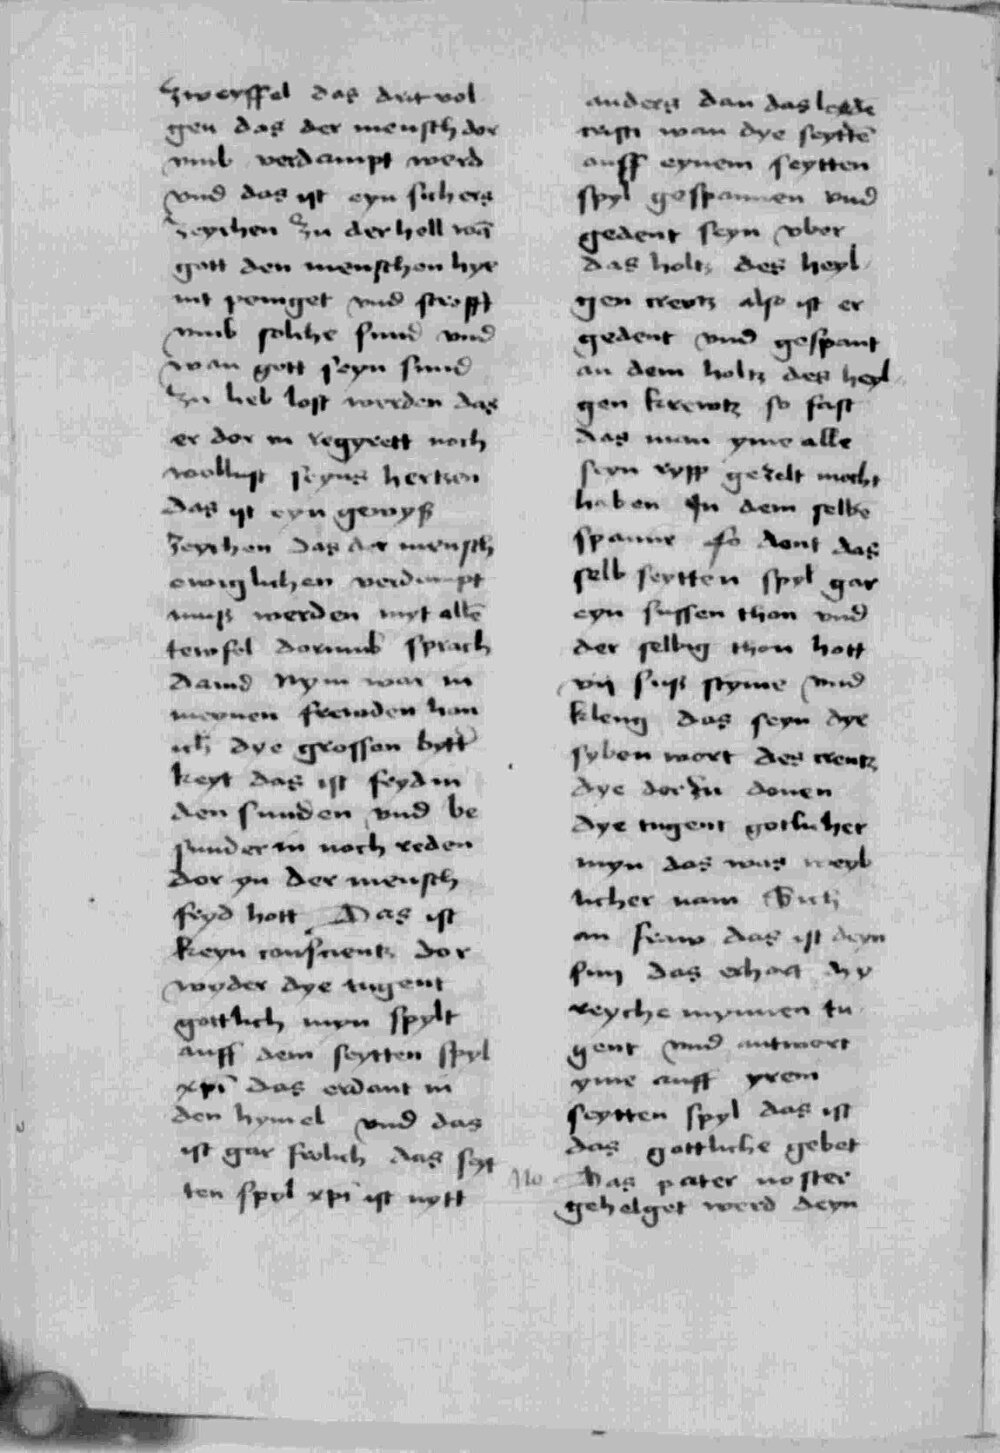 zweyffel das dar vol
gen das der mensch dor
vmb verdampt werd
vnd das ist eyn sichers
zeychen zu der hell wā
gott den menschen hye
nit peinget vnd strofft
vmb solche sund vnd
wan gott seyn sund
zu lieb lost werden das
er dor in regyrett noch
wollust seyns hertzen
das ist eyn gewyß
zeychen das der mensch
ewiglichen verdampt
muß werden myt allē
tewfel dorumb sprach
dauid Nym war in
meynen frewden han
ich dye grossen bytt
keyt das ist feyd in
den sunden vnd be
sunder in noch reden
dor yn der mensch
feyd hott Das ist
keyn conscientz dor
wyder dye tugent
gottlich myn spylt
auff dem seytten spyl
xpī das erdont in
den hymel vnd das
ist gar frolich das seyt
ten spyl xpī ist nytt
anders dan das leydē
cristi wan dye seyttē
auff eynem seytten
spyl gespannen vnd
gedent seyn vber
das holtz des heyl
gen crewtz also ist er
gedent vnd gespant
an dem holtz des heyl
gen krewtz so fast
das man yme alle
seyn rypp gezelt mocht
haben In dem selbē
spanne so dont das
selb seytten spyl gar
eyn sussen thon vnd
der selbig thon hott
vij suß styme vnd
kleng das seyn dye
syben wort des creutz
dye dor zu donen
dye tugent gotlicher
myn das was weyb
licher nam Sich
an fraw das ist deyn
sun das erhort dy
reyche mynnen tu
gent vnd antwort
yme auff yrem
seytten spyl das ist
das gottliche gebet
No Das pater noster
gehelget werd deyn